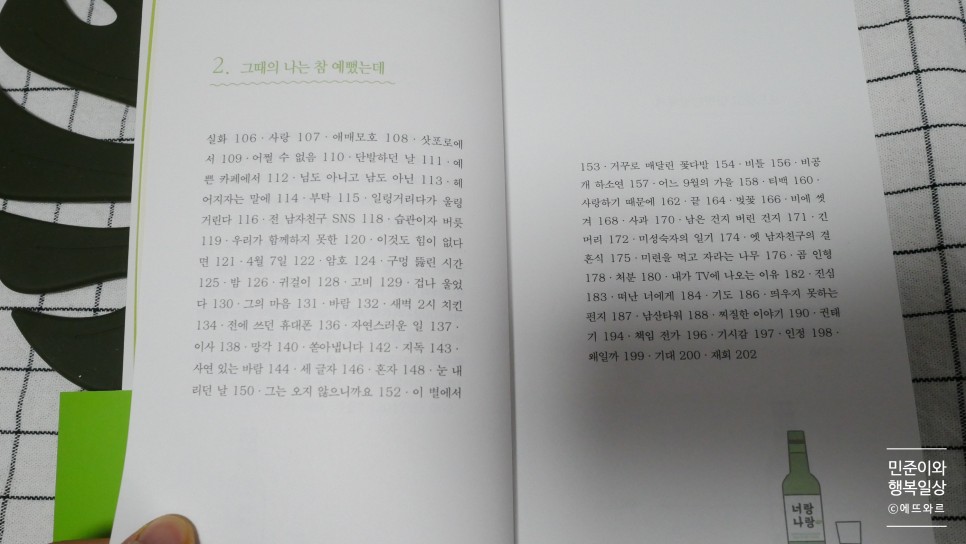 2. 그때의 나는 참 예뻤는데
실화 106 · 사랑 107 · 애매모호 108 · 삿포로에
서 109 · 어쩔 수 없음 110 · 단발하던 날 111 · 예
쁜 카페에서 112 · 님도 아니고 남도 아닌 113 · 헤
어지자는 말에 114 · 부탁 115 · 일렁거리다가 울렁
거린다 116 · 전 남자친구 SNS 118 · 습관이자 버릇
119 · 우리가 함께하지 못한 120 · 이것도 힘이 없다
면 121 · 4월 7일 122 · 암호 124 · 구멍 뚫린 시간
125 · 밤 126 · 귀걸이 128 · 고비 129 · 겁나 울었
다 130 · 그의 마음 131 · 바람 132 · 새벽 2시 치킨
134 · 전에 쓰던 휴대폰 136 · 자연스러운 일 137 ·
이사 138 · 망각 140 · 쏟아냅니다 142 · 지독 143 ·
사연 있는 바람 144 · 세 글자 146 · 혼자 148 · 눈 내
리던 날 150 · 그는 오지 않으니까요 152 · 이 별에서
153 · 거꾸로 매달린 꽃다발 154 · 비틀 156 · 비공
개 하소연 157 · 어느 9월의 가을 158 · 티백 160 ·
사랑하기 때문에 162 · 끝 164 · 벚꽃 166 · 비에 씻
겨 168 · 사과 170 · 남은 건지 버린 건지 171 · 긴
머리 172 · 미성숙자의 일기 174 · 옛 남자친구의 결
혼식 175 · 미련을 먹고 자라는 나무 176 · 곰 인형
178 · 처분 180 · 내가 TV에 나오는 이유 182 · 진심
183 · 떠난 너에게 184 · 기도 186 · 띄우지 못하는
편지 187 · 남산타워 188 · 찌질한 이야기 190 · 권태
기 194 · 책임 전가 196 · 기시감 197 · 인정 198 ·
왜일까 199 · 기대 200 · 재회 202
너랑
나랑
민준이와
행복일상
ⓒ에뜨와르